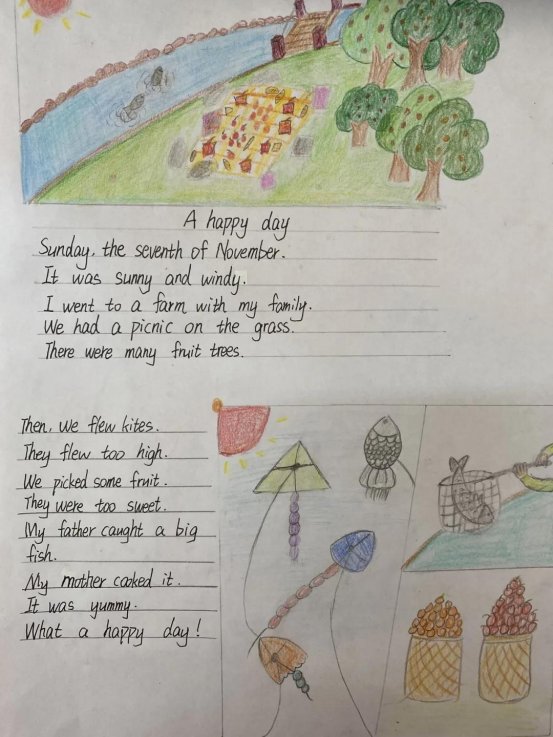 A happy day
Sunday, the seventh of November.
It was sunny and windy.
I went to a farm with my family.
We had a picnic on the grass.
There were many fruit trees.
Then, we flew kites.
They flew too high.
We picked some fruit.
They were too sweet.
My father caught a big
fish.
My mother cooked it.
It was yummy.
What a happy day!